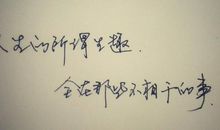 人生的所谓生趣，
全在那些不相干的事